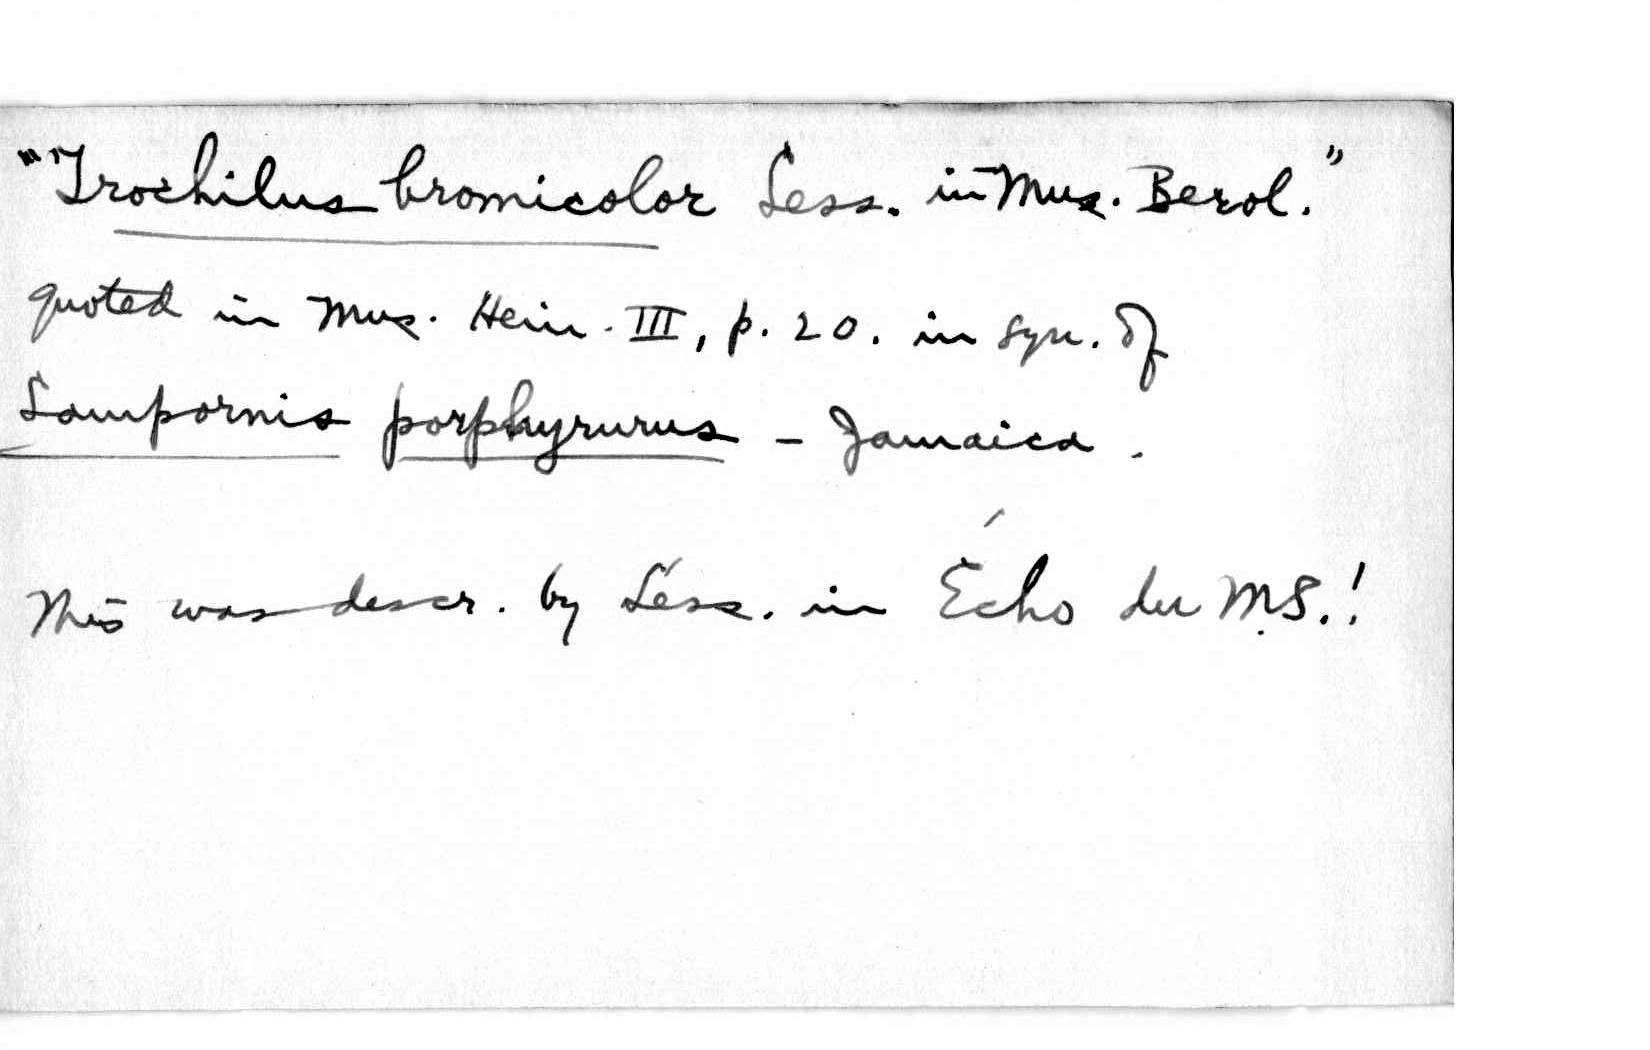 "Trochilus bromicolor Less. in Mus. Berol."
quoted in Mus. Hein. III, p. 20. in syn. of
Lampornis porphyrurus – Jamaica.
This was descr. by Less. in Écho du M.S.!